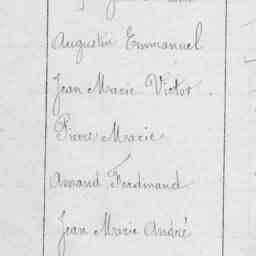 Augustin Emmanuel
Jean Marie Victor.
Pierre Marie
Amand Ferdinand
Jean Marie André